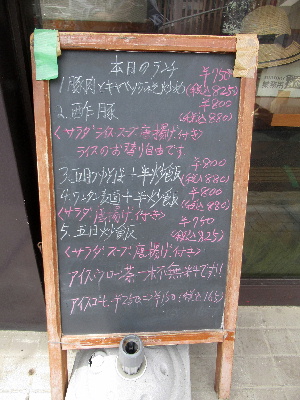 本日のランチ
1.豚肉とキャベツ 炒め ¥750 (税込825)
2.酢豚 ¥800 (税込880)
<サラダライススープ唐揚げ付き>
ライスのお替り自由です
3.五目 そば+半炒飯 ¥800 (税込880)
4.ワンタン麺+半炒飯 ¥800 (税込880)
<サラダ唐揚げ付き>
5.五目炒飯 ¥750 (税込825)
<サラダスープ唐揚げ付き>
アイスウーロン茶一杯無料です!!
アイスコーヒー ¥150(税込165)